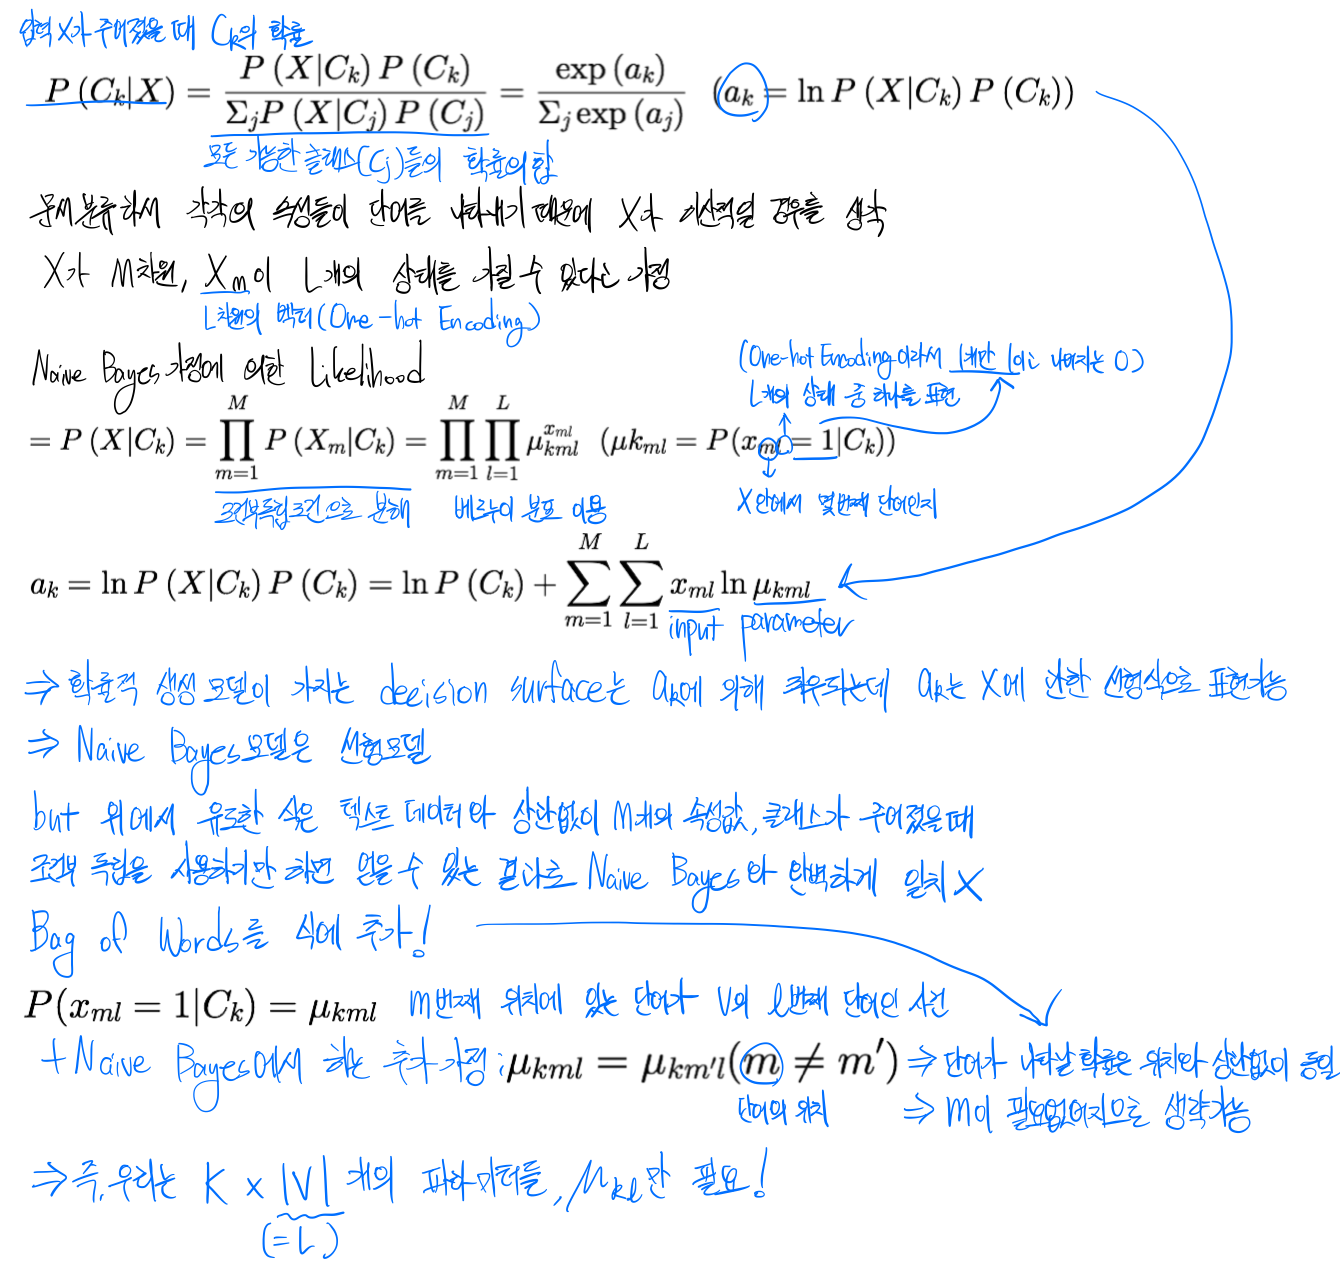 입력 X가 주어졌을 때 Ck의 확률
P (Ck|X) = P (X|Ck) P (Ck) / Σj P (X|Cj) P (Cj) = exp (ak) / Σj exp (aj) (ak = ln P (X|Ck) P (Ck))
모든 가능한 클래스(Cj)들의 확률의 합
문서분류하서 각각의 속성들이 단어를 나타내기 때문에 X가 이산적일 경우를 생각
X가 M차원, Xm이 L개의 상태를 가질 수 있다고 가정
L차원의 벡터(One-hot Encoding)
Naive Bayes 가정에 의한 Likelihood
(One-hot Encoding이라서 1개만 1이고 나머지는 0)
L개의 상태 중 하나를 표현
= P (X|Ck) = ∏_{m=1}^{M} P (Xm|Ck) = ∏_{m=1}^{M} ∏_{l=1}^{L} μ_{kml}^{x_{ml}} (μk_{ml} = P(x_{ml} = 1|Ck))
조건부독립조건으로 분해 베르누이 분포 이용 X안에서 몇번째 단어인지
ak = ln P (X|Ck) P (Ck) = ln P (Ck) + ∑_{m=1}^{M} ∑_{l=1}^{L} x_{ml} ln μ_{kml}
input parameter
⇒ 확률적 생성 모델이 가지는 decision surface는 ak에 의해 좌우되는데 ak는 X에 관한 선형식으로 표현가능
⇒ Naive Bayes모델은 선형모델
but 위에서 유도한 식은 텍스트 데이터와 상관없이 M개의 속성값, 클래스가 주어졌을때
조건부 독립을 사용하기만 하면 얻을 수 있는 결과로 Naive Bayes와 완벽하게 일치 X
Bag of Words를 식에 추가!
P(x_{ml} = 1|Ck) = μ_{kml} m번째 위치에 있는 단어가 V의 l번째 단어인 사건
+ Naive Bayes에서 하는 추가 가정 : μ_{kml} = μ_{km'l}(m ≠ m') ⇒ 단어가 나타날 확률은 위치와 상관없이 동일
단어의 위치 ⇒ m이 필요없어지므로 생략가능
⇒ 즉, 우리는 K × |V| 개의 파라미터들, μ_{kl}만 필요!
(=L)